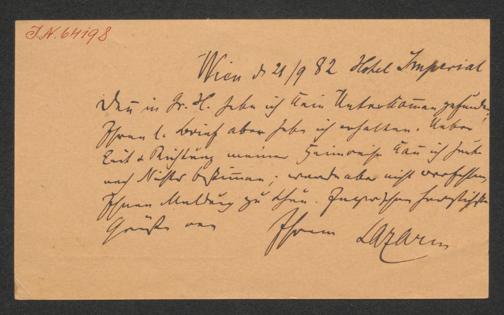 I.N. 64198
Wien d 21/9 82 Hotel Imperial
Den in Gr. H. habe ich kein Unterkommen gefunden,
Ihren l. Brief aber habe ich erhalten. Ueber
Zeit & Richtung meiner Heimreise kan ich heute
noch Nichts bestimmen; werde aber nicht verfehlen,
Ihnen Meldung zu thun. Inzwischen herzlichste
Grüße von Ihrem Lazarus